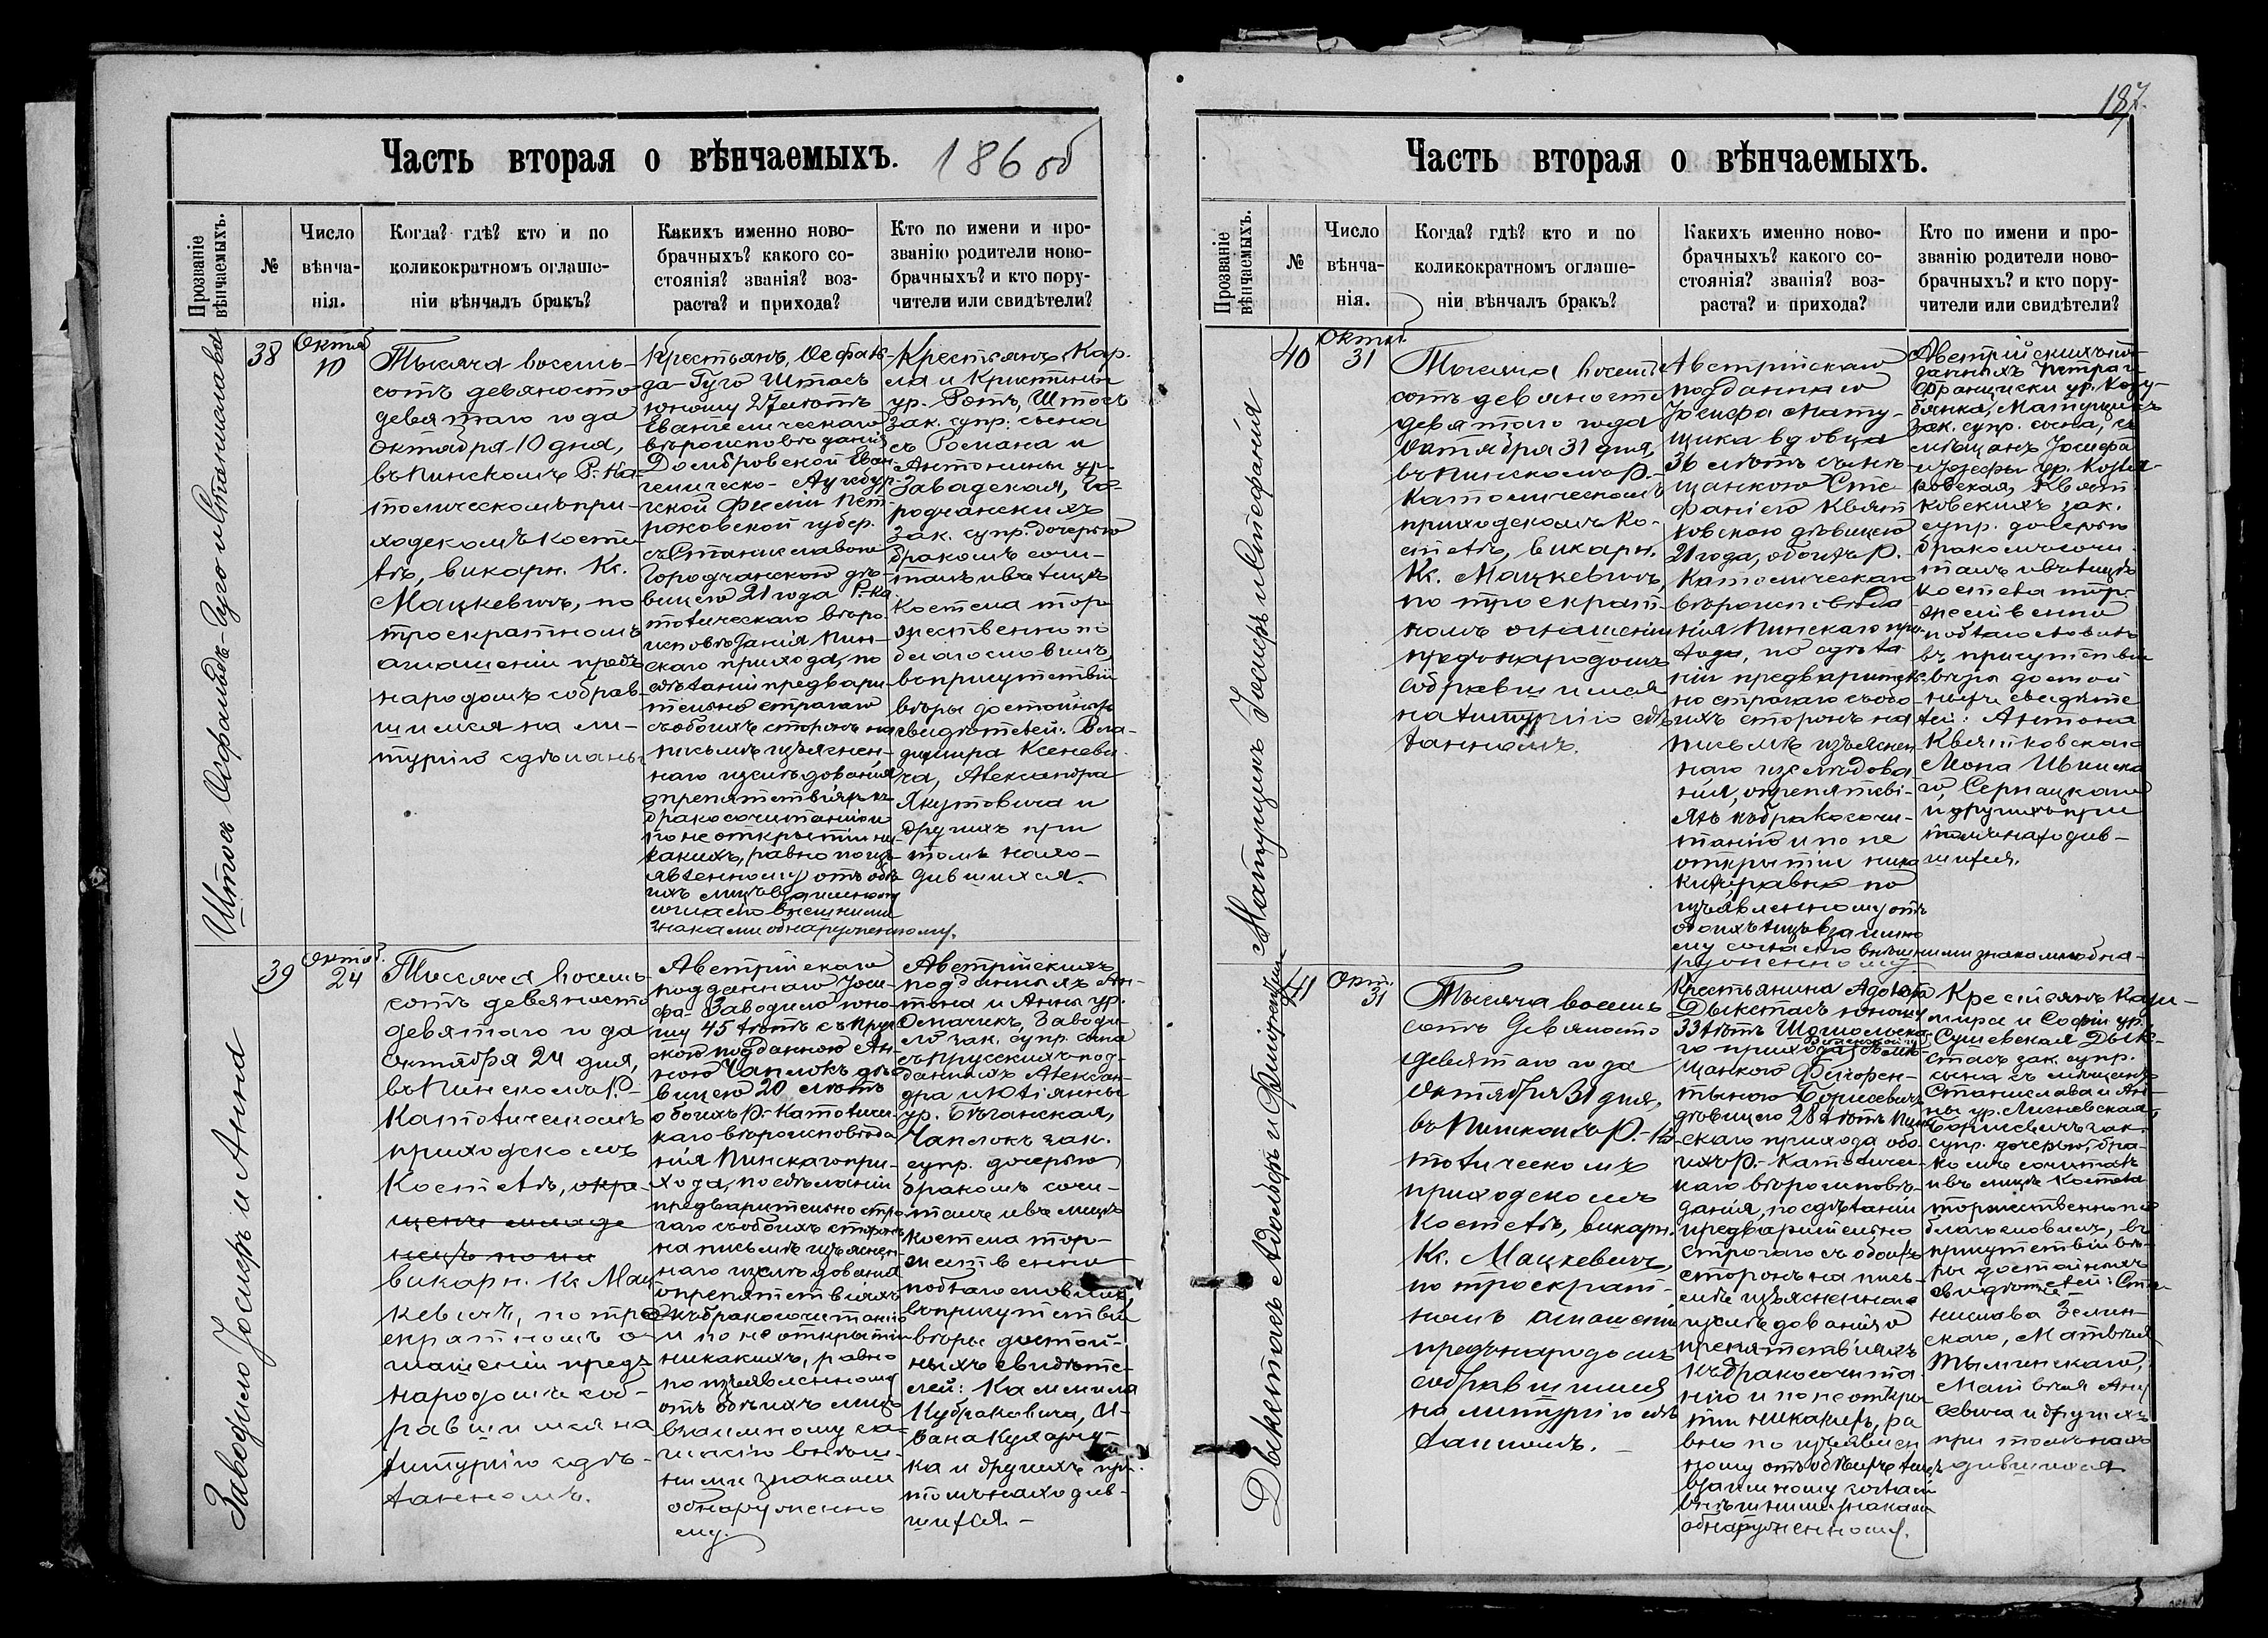 187.
Часть вторая о вѣнчаемыхъ. 186 об
Прозваніе вѣнчаемыхъ.
№
Число вѣнча-
нія.
Когда? гдѣ? кто и по
коликократномъ оглаше-
ніи вѣнчалъ бракъ?
Какихъ именно ново-
брачныхъ? какого со-
стоянія? званія? воз-
раста? и прихода?
Кто по имени и про-
званію родители ново-
брачныхъ? и кто пору-
чители или свидѣтели?
Штосъ и Станислава
38
Октяб
10
Тысяча восемь-
сотъ девяносто
девятаго года
Октября 10 дня,
въ Пинскомъ Р.-Ка-
толическомъ при-
ходскомъ косте-
лѣ, викарн. Кс.
Мацкевичъ, по
троекратномъ
оглашеніи предъ
народомъ собрав-
шимся на ли-
тургію
Крестьянъ,
да-Гуго Штосъ
юношу 27 лѣтъ
Евангелическаго
вѣроисповѣданія
Домбровской Еван-
гелическо-Аугсбур-
ской Петро-
ковской губер.
съ Станиславою
Городчанскою дѣ-
вицею 21 года Р.-Ка
толическаго вѣро-
исповѣданія Пин-
скаго прихода, по
сдѣланіи предвари-
тельно строгаго
съ обоихъ сторонъ на
письмѣ изъяснен-
наго изслѣдованія
о препятствіяхъ къ
бракосочетанію и
по не открытіи ни-
какихъ, равно по изъ-
явленному отъ обѣ-
ихъ лицъ взаимному
согласію внѣшними
знаками обнаруженному.
Крестьянъ Кар-
ла и Кристины
ур. Ротъ, Штосъ
зак. супр. сына
съ Романа и
Антонины ур.
Завадская, Го-
родчанскихъ
зак. супр. дочерью
бракомъ соче-
талъ и въ лицѣ
костела тор-
жественно по
благословилъ,
въ присутствіи
вѣры достойныхъ
свидѣтелей: Вла-
диміра Ксеневи-
ча, Александра
Якутовича и
другихъ при
томъ нахо-
дившихся.
Заводило Іосифъ и Анна
39
Октяб.
24
Тысяча восемь-
сотъ девяносто
девятаго года
Октября 24 дня,
въ Пинскомъ Р.-
Католическомъ
приходскомъ
Костелѣ,
викарн. Кс. Мац-
кевичъ, по тро-
екратномъ о-
глашеніи предъ
народомъ соб-
равшимся на
литургію сдѣ-
ланномъ.
Австрійскаго
подданнаго Іоси-
фа Заводило юно-
шу 45 лѣтъ съ Прус-
скою подданною Ан-
ною Чаплокъ дѣ-
вицею 20 лѣтъ
обоихъ Р.-Католиче-
скаго вѣроисповѣда
нія Пинскаго при-
хода, по сдѣланіи
предварительно стро-
гаго съ обоихъ сторонъ
на письмѣ изъяснен-
наго изслѣдованія
о препятствіяхъ
къ бракосочетанію
и по не открытіи
никакихъ, равно
по изъявленному
отъ обѣихъ лицъ
взаимному со-
гласію внѣш-
ними знаками
обнаруженно
му.
Австрійскихъ
подданныхъ Ан-
тона и Анны ур.
Заводи-
ло зак. супр. сына
съ Прусскихъ под-
данныхъ Алексан-
дра и Юліанны
ур.
Чаплокъ зак.
супр. дочерью
бракомъ соче-
талъ и въ лицѣ
костела тор-
жественно
поблагословилъ
въ присутствіи
вѣры достой-
ныхъ свидѣте-
лей: Камилла
Кубраковича, И-
вана Кухарчу-
ка и другихъ при
томъ находив-
шихся.
Часть вторая о вѣнчаемыхъ.
Прозваніе вѣнчаемыхъ.
№
Число вѣнча-
нія.
Когда? гдѣ? кто и по
коликократномъ оглаше-
ніи вѣнчалъ бракъ?
Какихъ именно ново-
брачныхъ? какого со-
стоянія? званія? воз-
раста? и прихода?
Кто по имени и про-
званію родители ново-
брачныхъ? и кто пору-
чители или свидѣтели?
Матущикъ Іосифъ и Стефанія
40
Октяб.
31
Тысяча восемь
сотъ девяносто
девятаго года
Октября 31 дня,
въ Пинскомъ Р.-
Католическомъ
приходскомъ Ко-
стелѣ, викарн.
Кс. Мацкевичъ,
по троекрат-
номъ оглашеніи
предъ народомъ
собравшимся
на литургію сдѣ
ланномъ.
Австрійскаго
подданнаго
Іосифа Мату-
щика вдовца
36 лѣтъ съ мѣ-
щанкою Сте
фаніею Квят
ковскою дѣвицею
21 года, обоихъ Р.-
Католическаго
вѣроисповѣда
нія Пинскаго при-
хода, по сдѣла
ніи предваритель-
но строгаго съ обо-
ихъ сторонъ на
письмѣ изъяснен
наго изслѣдова
нія, о препятстві-
яхъ къ бракосоче-
танію и по не
открытіи ника
кихъ, равно по
изъявленному отъ
обоихъ лицъ взаимно
му согласію внѣшними знаками обна-
руженному.
Австрійскихъ под-
данныхъ Петра и
Франциски ур.
Матущикъ
зак. супр. сына, съ
мѣщанъ Іосифа
и Юзефы ур.
Квят
ковскихъ зак.
супр. дочерью
бракомъ соче
талъ и въ лицѣ
костела тор-
жественно
поблагословилъ
въ присутствіи
вѣры достой
ныхъ свидѣте
лей: Антона
Квятковскаго
Сернацкаго
и другихъ при
томъ находив-
шихся.
Дыкстасъ Адольфъ и Флорентина
41
Окт.
31
Тысяча восемь
сотъ девяносто
девятаго года
Октября 31 дня,
въ Пинскомъ Р.-Ка
толическомъ
приходскомъ
Костелѣ, викарн.
Кс. Мацкевичъ,
по троекрат-
номъ оглашеніи
предъ народомъ
собравшимся
на литургію сдѣ
ланномъ.
Крестьянина Адольфа
Дыкстасъ юношу
33 лѣтъ
го прихода съ мѣ-
щанкою Флорен-
тиною Борисевичъ
дѣвицею 28 лѣтъ Пин-
скаго прихода обо-
ихъ Р.-Католиче-
скаго вѣроисповѣ-
данія, по сдѣланіи
предварительно
строгаго съ обоихъ
сторонъ на пись-
мѣ изъясненнаго
изслѣдованія о
препятствіяхъ
къ бракосочета-
нію и по не откры-
тіи никакихъ, ра
вно по изъявлен
ному отъ обѣихъ лицъ
взаимному согласію
внѣшними знаками
обнаруженному.
Крестьянъ Кази-
мира и Софіи ур.
Сушевская Дык-
стасъ зак. супр.
сына съ мѣщанъ
Станислава и Ан-
ны ур. Лисневская
Борисевичъ зак.
супр. дочерью, бра-
комъ сочеталъ
и въ лицѣ костела
торжественно по
благословилъ, въ
присутствіи вѣ-
ры достойныхъ
свидѣтелей: Ста-
нислава Зелин-
скаго, Матвѣя
Тылинскаго,
Матвѣя
и другихъ
при томъ нахо
дившихся